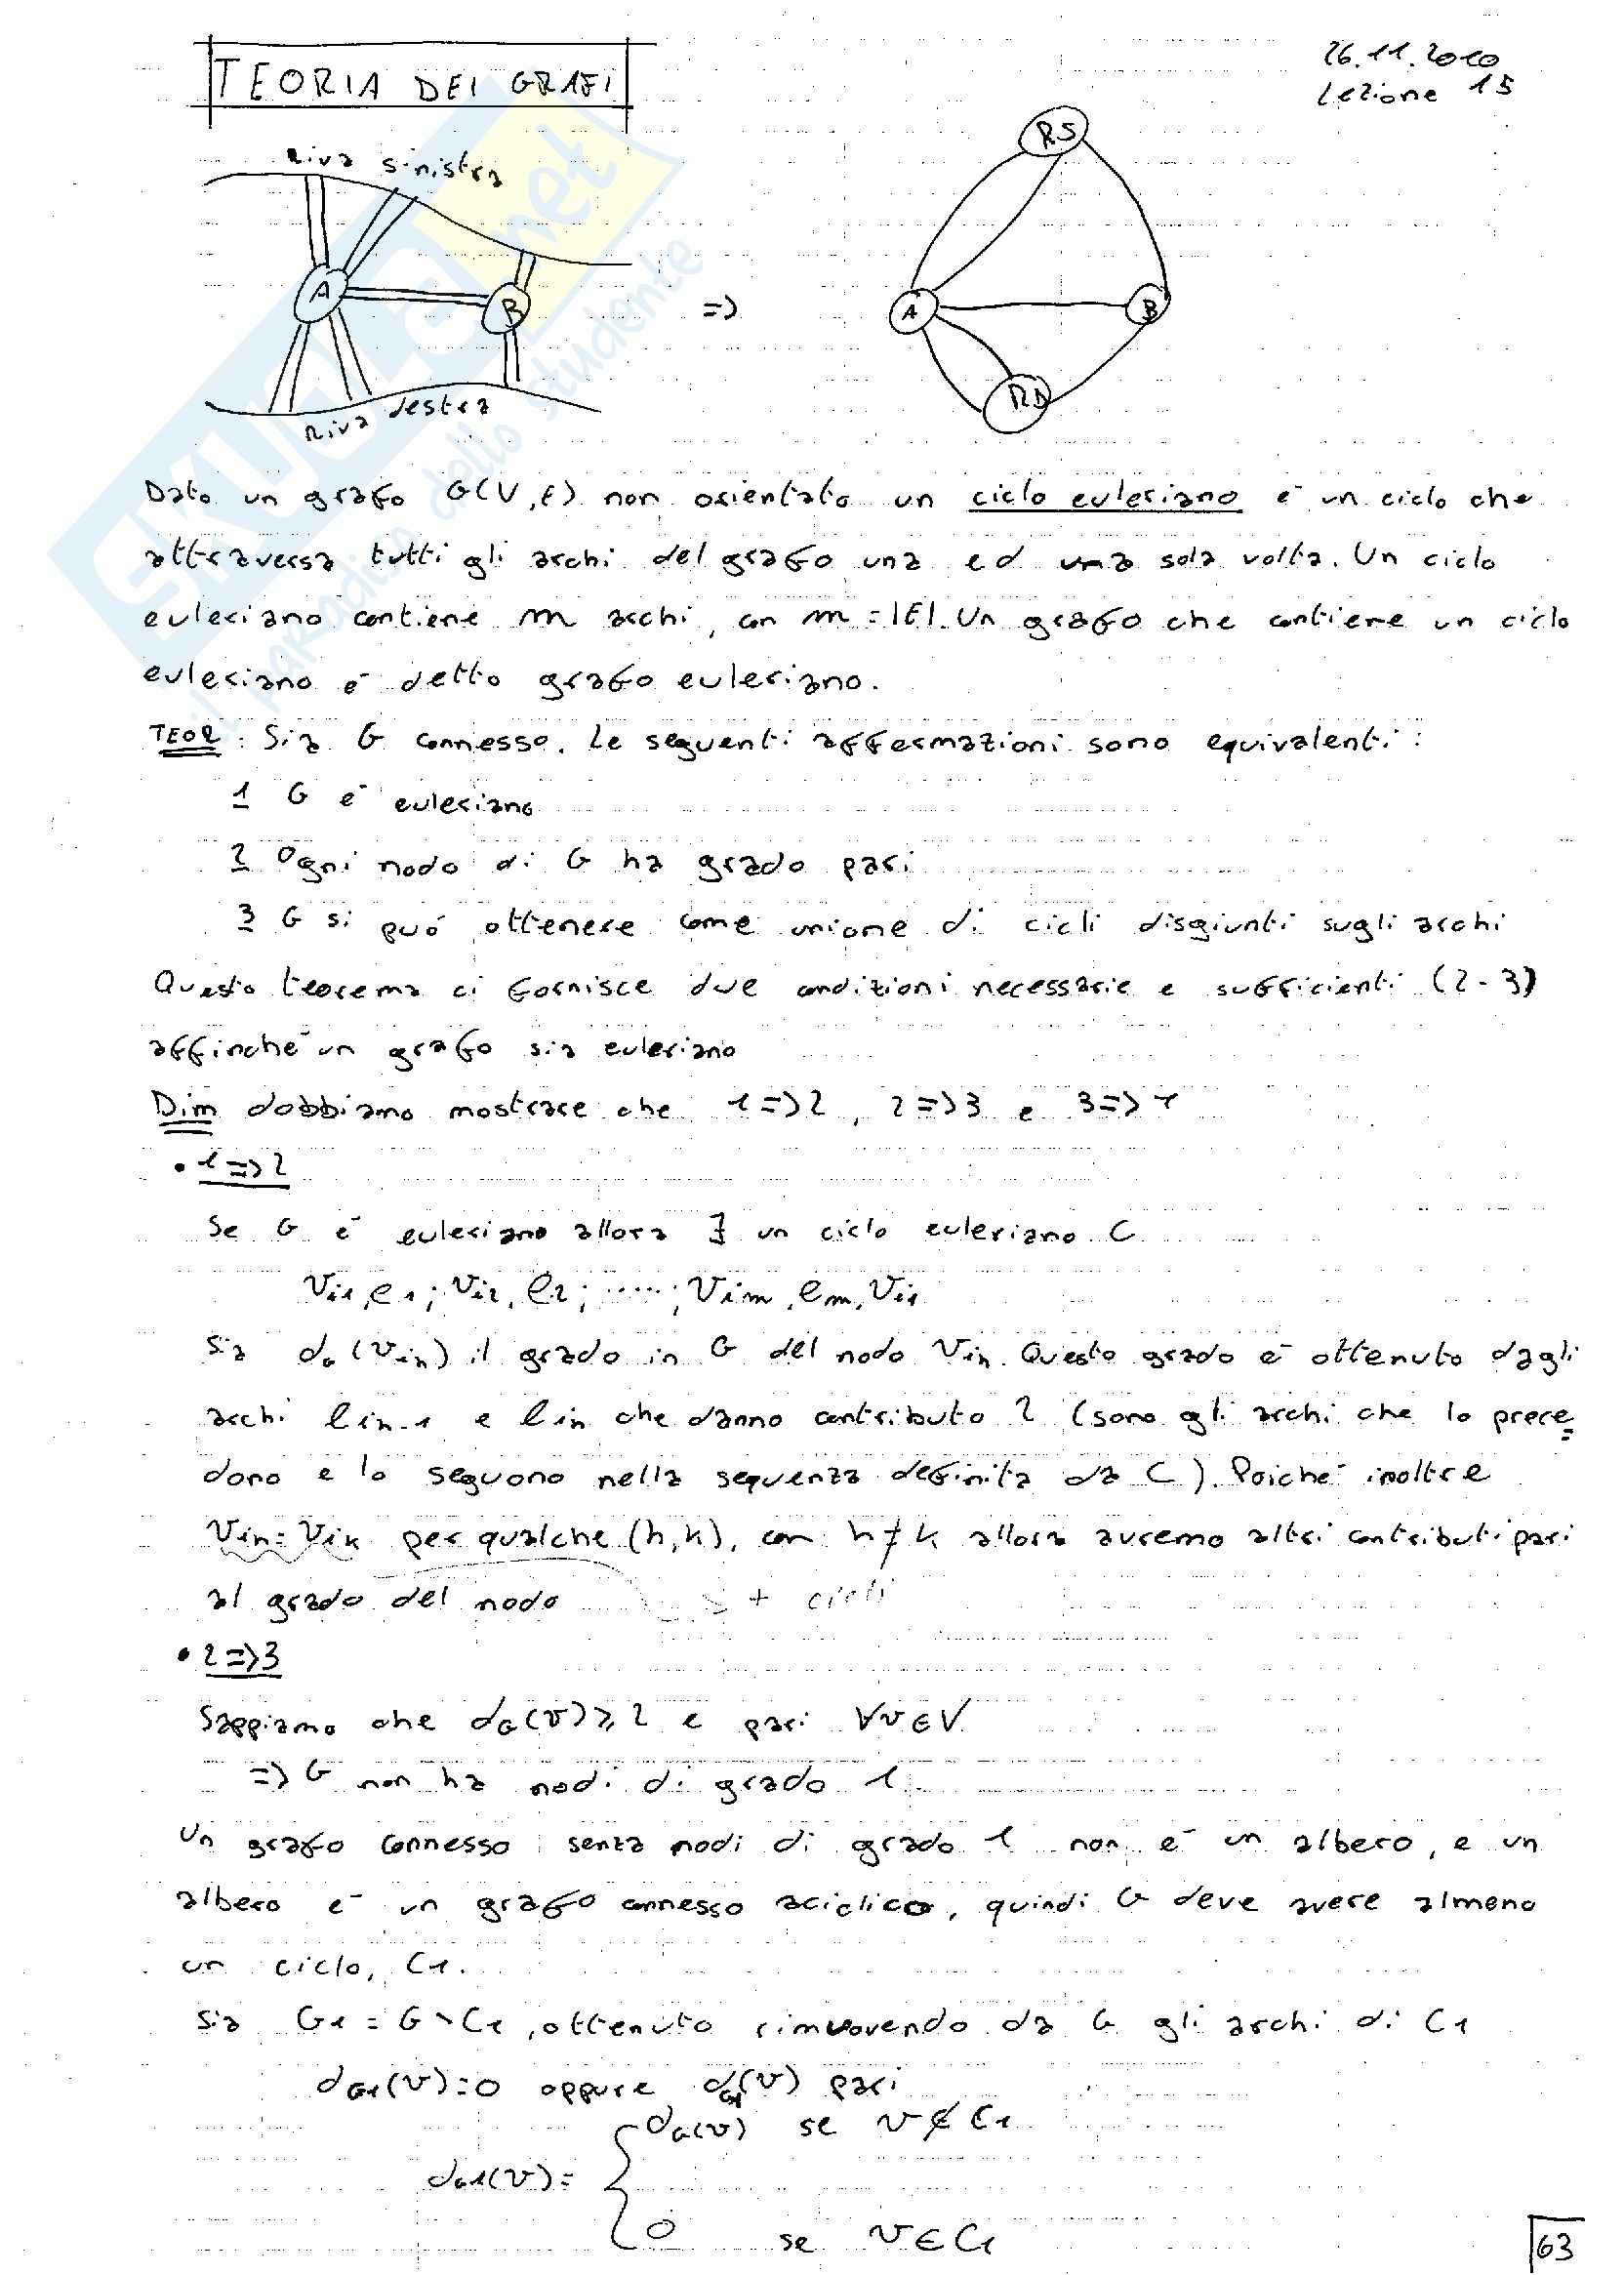 TEORIA DEI GRAFI
26.11.2010
Lezione 15
Riva sinistra
A
B
Riva destra
=>
RS
A
B
RD
Dato un grafo G(V,E) non orientato un ciclo euleriano è un ciclo che
attraversa tutti gli archi del grafo una ed una sola volta. Un ciclo
euleriano contiene m archi, con m=|E|. Un grafo che contiene un ciclo
euleriano è detto grafo euleriano.
TEOR: Sia G connesso. Le seguenti affermazioni sono equivalenti:
1 G è euleriano
2 Ogni nodo di G ha grado pari
3 G si può ottenere come unione di cicli disgiunti sugli archi
Questo teorema ci fornisce due condizioni necessarie e sufficienti (2-3)
affinché un grafo sia euleriano
Dim dobbiamo mostrare che 1=>2, 2=>3 e 3=>1
• 1=>2
Se G è euleriano allora ∃ un ciclo euleriano C
Vi1,e1; Vi2,e2; .....; Vim,em,Vi1
Sia dG(Vih) il grado in G del nodo Vih. Questo grado è ottenuto dagli
archi lih-1 e lih che danno contributo 2 (sono gli archi che lo prece=
dono e lo seguono nella sequenza definita da C). Poiché inoltre
Vih=Vik per qualche (h,k), con h≠k allora avremo altri contributi pari
al grado del nodo + cicli
• 2=>3
Sappiamo che dG(v)≥2 e pari ∀v∈V
=> G non ha nodi di grado 1
Un grafo connesso senza nodi di grado 1 non è un albero, e un
albero è un grafo connesso aciclico, quindi G deve avere almeno
un ciclo, C1.
Sia G1 = G \ C1, ottenuto rimuovendo da G gli archi di C1
dG1(v)=0 oppure dG1(v) pari
dG1(v)= { dG(v) se v∉C1
0 se v∈C1
63